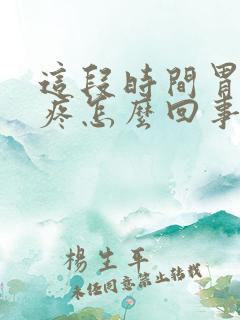 這段時間胃
疼怎麼回事
楊生平
未经同意禁止转载